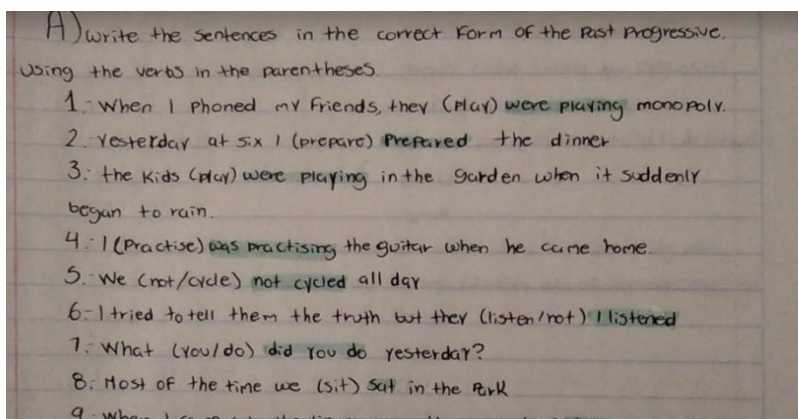 A) write the sentences in the correct form of the Past Progressive.
Using the verbs in the parentheses.
1.- When I phoned my friends, they (play) were playing monopoly.
2.- Yesterday at six I (prepare) Prepared the dinner
3.- the kids (play) were playing in the garden when it suddenly
began to rain.
4.- I (Practise) was practising the guitar when he came home.
5.- We (not/cycle) not cycled all day
6.- I tried to tell them the truth but they (listen/not) I listened
7.- What (you/do) did you do yesterday?
8.- Most of the time we (sit) Sat in the Park
9.- When I